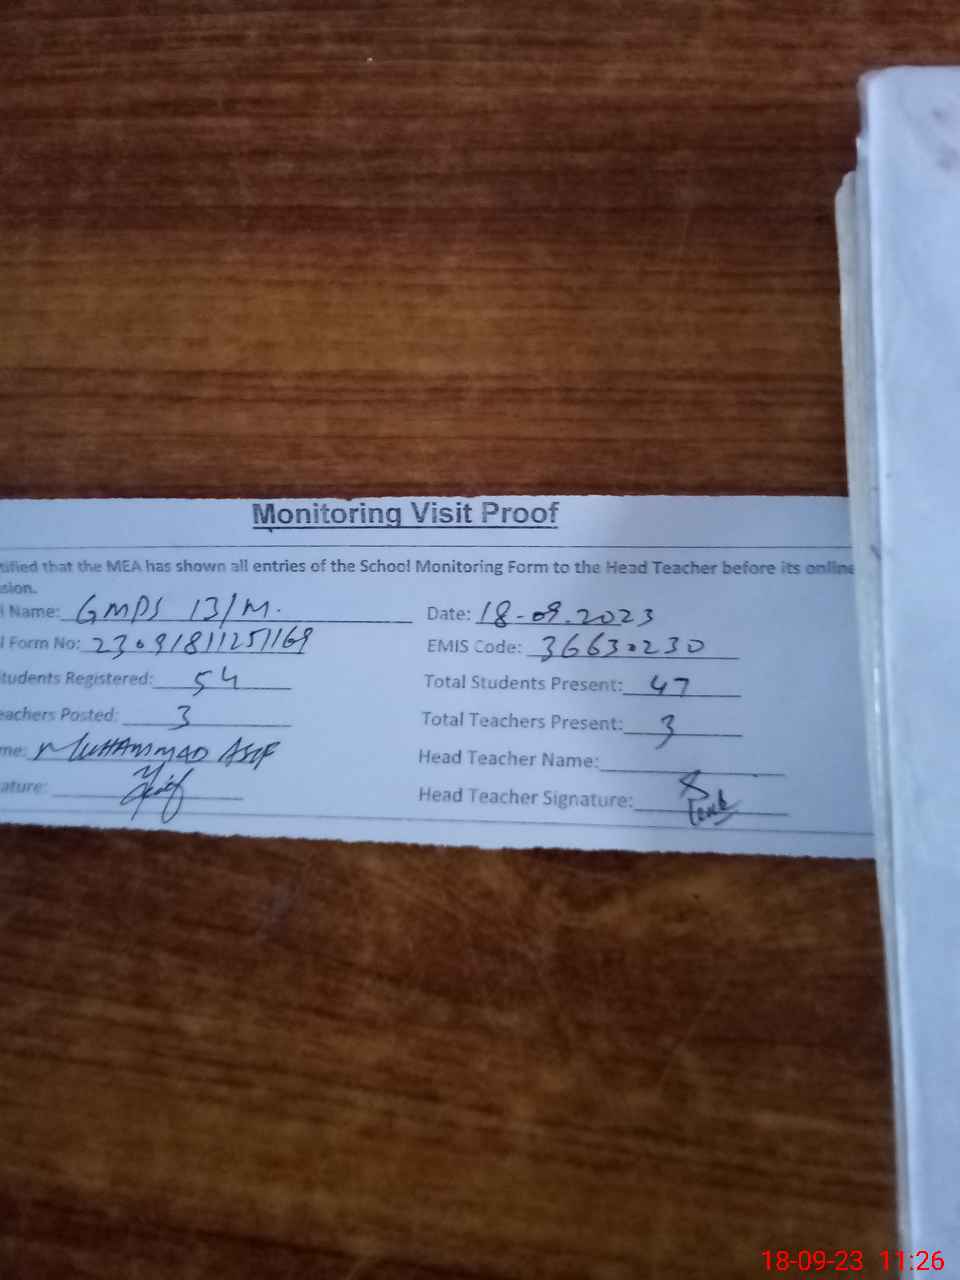 Monitoring Visit Proof
tified that the MEA has shown all entries of the School Monitoring Form to the Head Teacher before its online
sion.
l Name: GMPS 13/M. Date: 18-09.2023
l Form No: 23091811251169 EMIS Code: 36630230
tudents Registered: 54 Total Students Present: 47
eachers Posted: 3 Total Teachers Present: 3
me: MUHAMMAD ASIF Head Teacher Name:
ature: Head Teacher Signature:
18-09-23 11:26